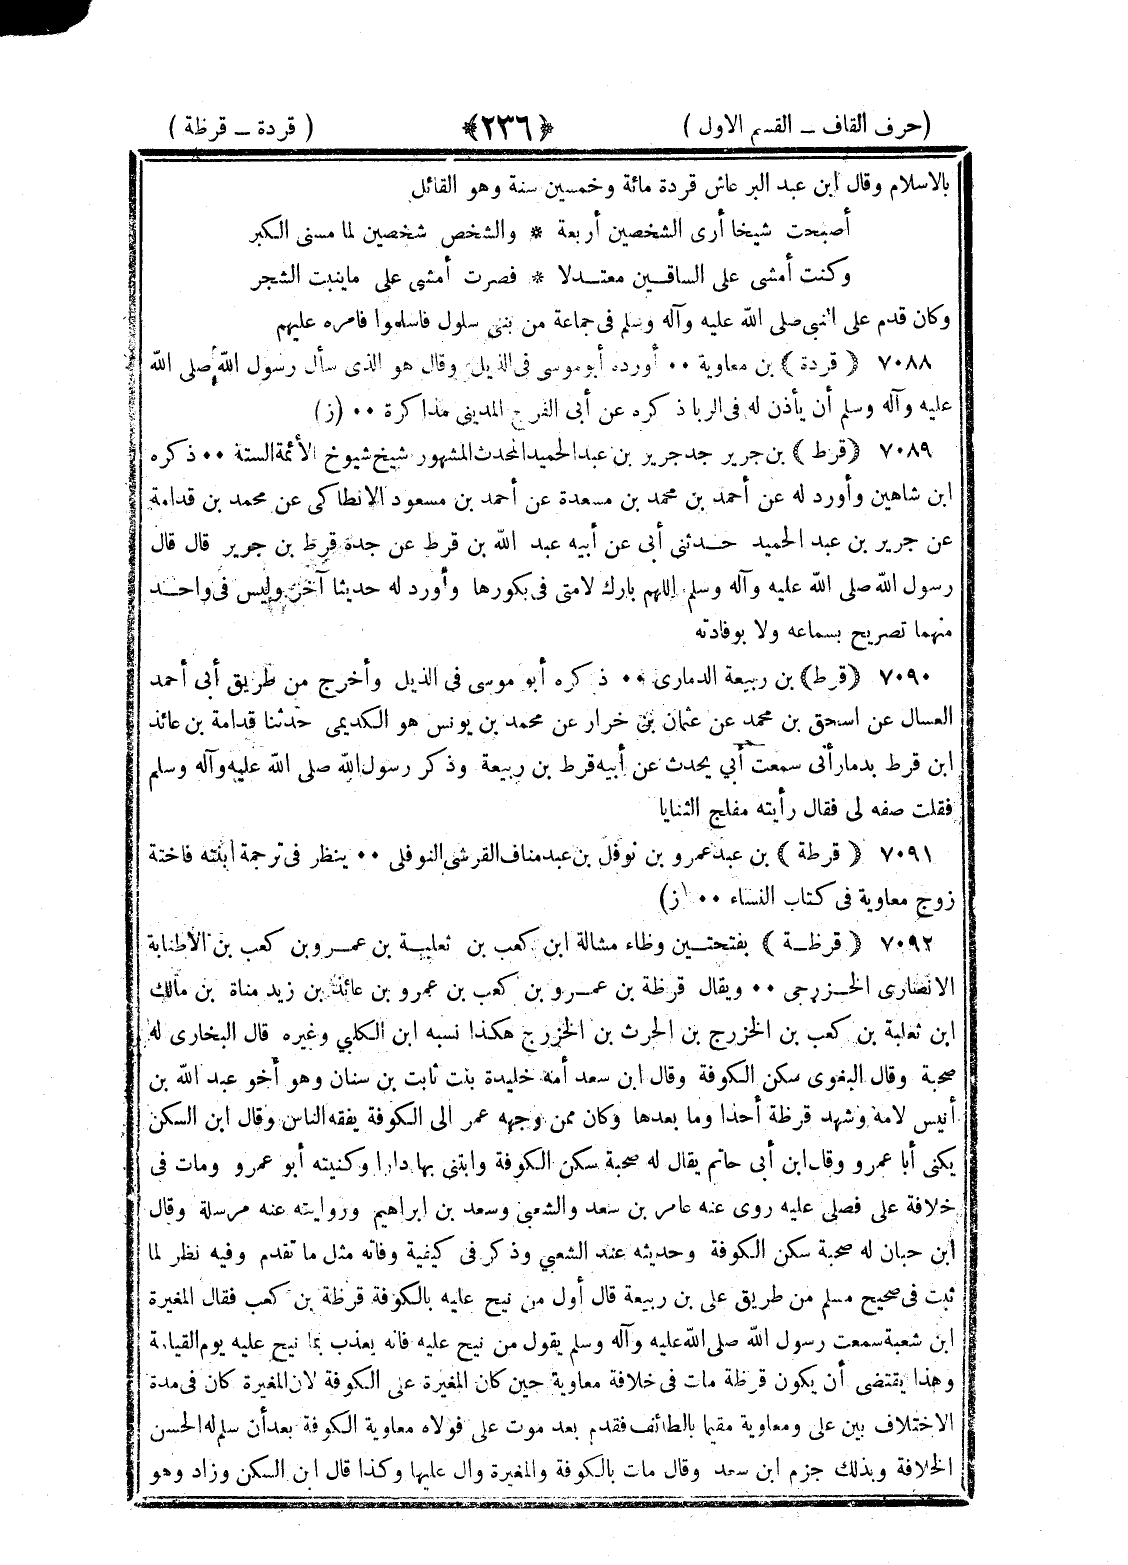 (حرف القاف ــ القسم الاول)
﴿٢٣٦﴾
(قردة ــ قرظة)
بالاسلام وقال ابن عبد البر عاش قردة مائة وخمسين سنة وهو القائل
أصبحت شيخا أرى الشخصين أربعة * والشخص شخصين لما مسنى الكبر
وكنت أمشى على الساقين معتدلا * فصرت أمشى على ماينبت الشجر
وكان قدم على النبي صلى الله عليه وآله وسلم فى جماعة من بنى سلول فاسلموا فامره عليهم
٧٠٨٨ ﴿قردة﴾ بن معاوية ٠٠ أورده أبو موسى فى الذيل وقال هو الذى سأل رسول الله صلى الله
عليه وآله وسلم أن يأذن له فى الربا ذكره عن أبى الفرج المدينى مذاكرة ٠٠ (ز)
٧٠٨٩ ﴿قرط﴾ بن جرير جد جرير بن عبد الحميد المحدث المشهور شيخ شيوخ الأئمة الستة ٠٠ ذكره
ابن شاهين وأورد له عن أحمد بن محمد بن مسعدة عن أحمد بن مسعود الانطاكى عن محمد بن قدامة
عن جرير بن عبد الحميد حدثنى أبى عن أبيه عبد الله بن قرط عن جدة قرط بن جرير قال قال
رسول الله صلى الله عليه وآله وسلم اللهم بارك لامتى فى بكورها وأورد له حديثا آخر وليس فى واحد
منهما تصريح بسماعه ولا بوفادته
٧٠٩٠ ﴿قرط﴾ بن ربيعة الدمارى ٠٠ ذكره أبو موسى فى الذيل وأخرج من طريق أبى أحمد
العسال عن اسحق بن محمد عن عثمان بن خرار عن محمد بن يونس هو الكديمى حدثنا قدامة بن عائذ
ابن قرط بدمارأنى سمعت أبي يحدث عن أبيه قرط بن ربيعة وذكر رسول الله صلى الله عليه وآله وسلم
فقلت صفه لى فقال رأيته مفلج الثنايا
٧٠٩١ ﴿قرطة﴾ بن عبد عمرو بن نوفل بن عبد مناف القرشى النوفلى ٠٠ ينظر فى ترجمة ابنته فاختة
زوج معاوية فى كتاب النساء ٠٠ (ز)
٧٠٩٢ ﴿قرظة﴾ بفتحتين وظاء مشالة ابن كعب بن ثعلبة بن عمرو بن كعب بن الأطنابة
الانصارى الخزرجى ٠٠ ويقال قرظة بن عمرو بن كعب بن عمرو بن عائذ بن زيد مناة بن مالك
ابن ثعلبة بن كعب بن الخزرج بن الحرث بن الخزرج هكذا نسبه ابن الكلبي وغيره قال البخارى له
صحبة وقال البغوى سكن الكوفة وقال ابن سعد أمه خليدة بنت ثابت بن سنان وهو أخو عبد الله بن
أنيس لامه وشهد قرظة أحدا وما بعدها وكان ممن وجهه عمر الى الكوفة يفقه الناس وقال ابن السكن
يكنى أبا عمرو وقال ابن أبى حاتم يقال له صحبة سكن الكوفة وابتنى بها دارا وكنيته أبو عمرو ومات فى
خلافة على فصلى عليه روى عنه عامر بن سعد والشعبى وسعد بن ابراهيم وروايته عنه مرسلة وقال
ابن حبان له صحبة سكن الكوفة وحديثه عند الشعبي وذكر فى كيفية وفاته مثل ما تقدم وفيه نظر لما
ثبت فى صحيح مسلم من طريق على بن ربيعة قال أول من نيح عليه بالكوفة قرظة بن كعب فقال المغيرة
ابن شعبة سمعت رسول الله صلى الله عليه وآله وسلم يقول من نيح عليه فانه يعذب بما نيح عليه يوم القيامة
وهذا يقتضى أن يكون قرظة مات فى خلافة معاوية حين كان المغيرة على الكوفة لان المغيرة كان فى مدة
الاختلاف بين على ومعاوية مقيما بالطائف فقدم بعد موت على فولاه معاوية الكوفة بعد أن سلم له الحسن
الخلافة وبذلك جزم ابن سعد وقال مات بالكوفة والمغيرة وال عليها وكذا قال ابن السكن وزاد وهو